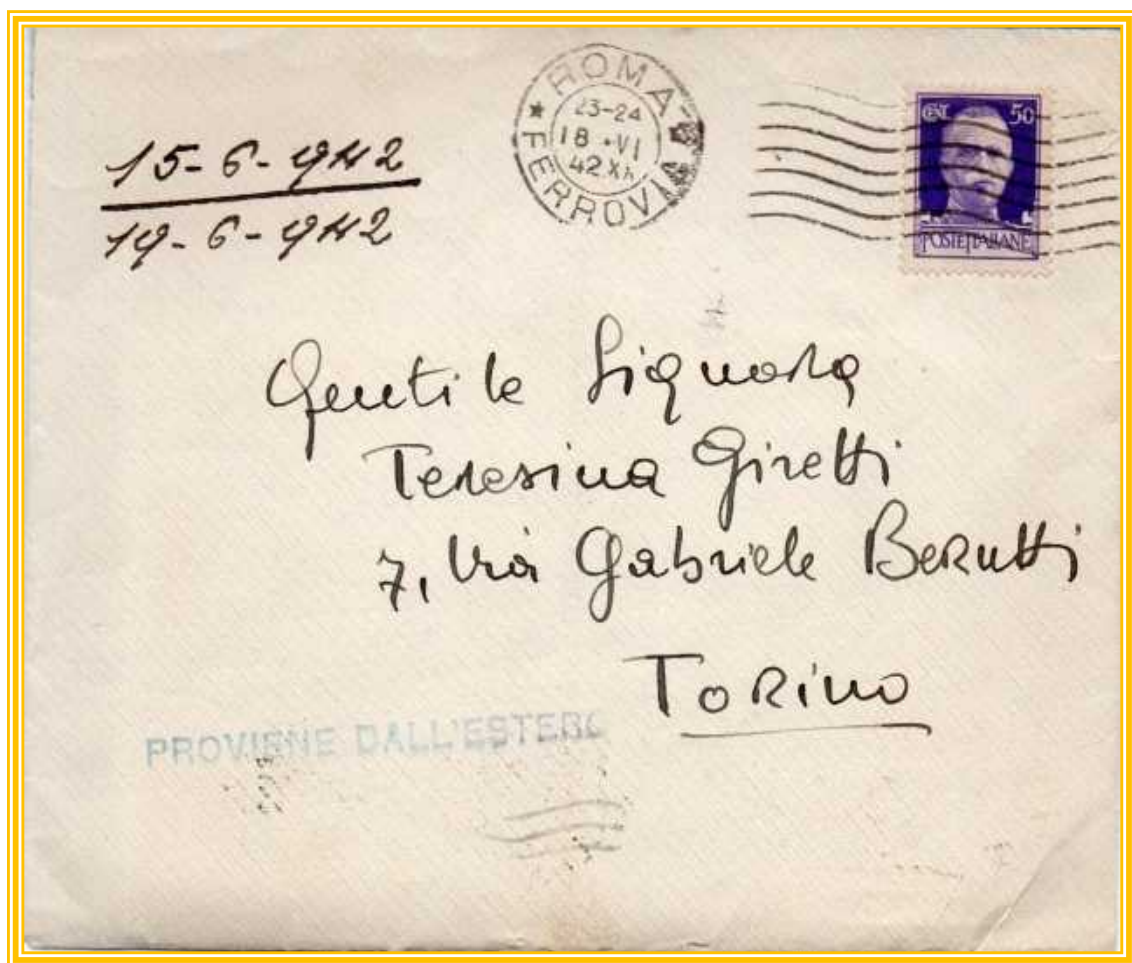 15-6-942
19-6-942
ROMA
23-24
18 · VI
42 XX
★ FERROVIA
CENT 50
POSTE ITALIANE
Gentile Signora
Teresina Giretti
7, Via Gabriele Berutti
Torino
PROVIENE DALL'ESTERO